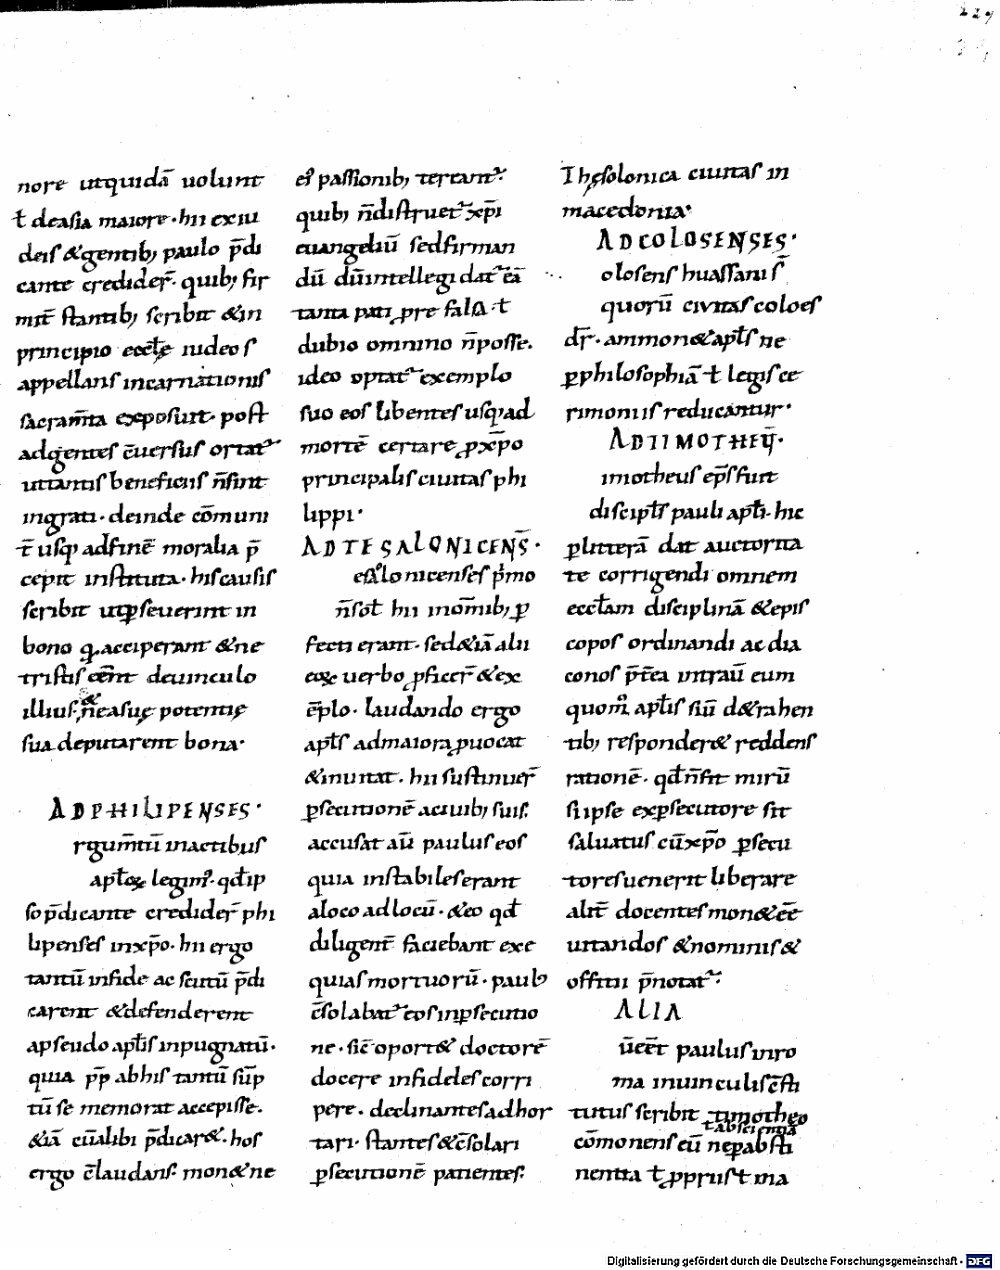 229
nore utquidā uolunt
ł deasia maiore · hii exiu
deis &gentib; paulo p̄di
cante credider̄ · quib; fir
mit̄ stantib; scribit &in
principio eccl̄ę iudeos
appellans incarnationis
sacram̄ta exposuit · post
adgentes c̄uersus ortat᷑
uttantis beneficiis n̄sint
ingrati · deinde cōmuni
t̄ usq; adfinē moralia p̄
cepit instituta · his causis
scribit utꝑseuerint in
bono q̨ acciperant &ne
tristis eēnt deuinculo
illius · &
n̄easuę potentię
sua deputarent bona ·
ADPHILIPENSES ·
rgum̄tū inactibus
apl̄oꝝ legim᷒ · qđip
so p̄dicante credider̄ phi
lipenses inxp̄o · hii ergo
tantū infide ac scutū p̄di
carent &defenderent
apseudo apl̄is inpugnatū ·
quia pp̄ abhis tantū sūp
tū se memorat accepisse ·
&iā cū̄alibi p̄dicar& · hos
ergo c̄laudans · mon&ne
ei᷒ passionib; terreant᷑
quib; n̄distruet᷑ xp̄i
euangeliū sedfirman
dū dūintellegi dat᷑ eā
tanta pati ꝓre falsa ł
dubio omnino n̄posse ·
ideo optat᷑ exemplo
suo eos libentes usq;ad
mortē certare ꝓxp̄o
principalis ciuitas phi
lippi ·
ADTESALONICENS̄ ·
essalonicenses p̄mo
n̄sol̄ hii inom̄ib; ꝑ
fecti erant · sed&iā alii
eoꝝ uerbo ꝓficer̄ &ex
ēplo · laudando ergo
apl̄s admaiora ꝓuocat
&inuitat · hii sustinuer̄
ꝑsecutionē aciuib; suis ·
accusat aū paulus eos
quia instabiles erant
aloco ad locū · &eo qđ
diligent̄ faciebant exe
quias mortuorū · paul᷒
c̄solabat᷑ eos inꝑsecutio
ne · sic̄ oport& doctorē
docere infideles corri
pere · declinantes adhor
tari · stantes &c̄solari
ꝑsecutionē patientes ·
Thęsolonica ciuitas in
macedonia ·
ADCOLOSENSES ·
olosens huassani s̄
quorū civitas coloes
dr̄ · ammon& apl̄s ne
ꝑphilosophiā ł legis ce
rimoniis reducantur ·
ADTIMOTHEŪ ·
imotheus ep̄s fuit
discipl̄s pauli apl̄i · hic
ꝑlitterā dat auctorita
te corrigendi omnem
eccl̄am disciplinā &epis
copos ordinandi ac dia
conos p̄t̄ea intraū eum
quom᷒ apl̄is siū d&rahen
tib; responder& reddens
rationē · qđn̄sit mirū
si ipse exꝑsecutore sit
saluatus cūxp̄o ꝑsecu
tores uenerit liberare
alit̄ docentes mon&eē
uitandos &nominis &
offitii p̄notat᷑ ·
ALIA
ūeēt paulus inro
ma inuinculis c̄sti
tutus scribit timotheo
ł abscientiā
cōmonens eū neꝑabsti
nentia ł ꝓpriis ł ma
Digitalisierung gefördert durch die Deutsche Forschungsgemeinschaft · DFG